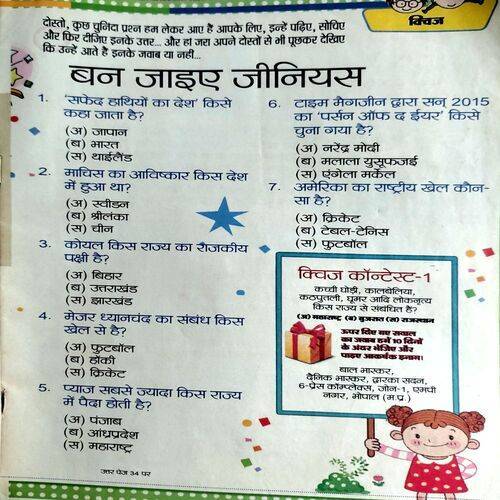 क्विज
दोस्तो, कुछ चुनिंदा प्रश्न हम लेकर आए हैं आपके लिए, इन्हें पढ़िए, सोचिए
और फिर दीजिए इनके उत्तर... और हां जरा अपने दोस्तों से भी पूछकर देखिए
कि उन्हें आते हैं इनके जवाब या नहीं...
बन जाइए जीनियस
1. 'सफेद हाथियों का देश' किसे
कहा जाता है?
(अ) जापान
(ब) भारत
(स) थाईलैंड
2. माचिस का आविष्कार किस देश
में हुआ था?
(अ) स्वीडन
(ब) श्रीलंका
(स) चीन
3. कोयल किस राज्य का राजकीय
पक्षी है?
(अ) बिहार
(ब) उत्तराखंड
(स) झारखंड
4. मेजर ध्यानचंद का संबंध किस
खेल से है?
(अ) फुटबॉल
(ब) हॉकी
(स) क्रिकेट
5. प्याज सबसे ज्यादा किस राज्य
में पैदा होती है?
(अ) पंजाब
(ब) आंध्रप्रदेश
(स) महाराष्ट्र
उत्तर पेज 34 पर
6. टाइम मैगजीन द्वारा सन् 2015
का 'पर्सन ऑफ द ईयर' किसे
चुना गया है?
(अ) नरेंद्र मोदी
(ब) मलाला यूसुफजई
(स) एंगेला मर्केल
7. अमेरिका का राष्ट्रीय खेल कौन-
सा है?
(अ) क्रिकेट
(ब) टेबल-टेनिस
(स) फुटबॉल
क्विज कॉन्टेस्ट-1
कच्ची घोड़ी, कालबेलिया,
कठपुतली, घूमर आदि लोकनृत्य
किस राज्य से संबंधित हैं?
(अ) महाराष्ट्र (ब) गुजरात (स) राजस्थान
ऊपर दिए गए सवाल
का जवाब हमें 10 दिनों
के अंदर भेजिए और
पाइए आकर्षक इनाम।
बाल भास्कर,
दैनिक भास्कर, द्वारका सदन,
6-प्रेस कॉम्प्लेक्स, जोन-1, एमपी
नगर, भोपाल (म.प्र.)